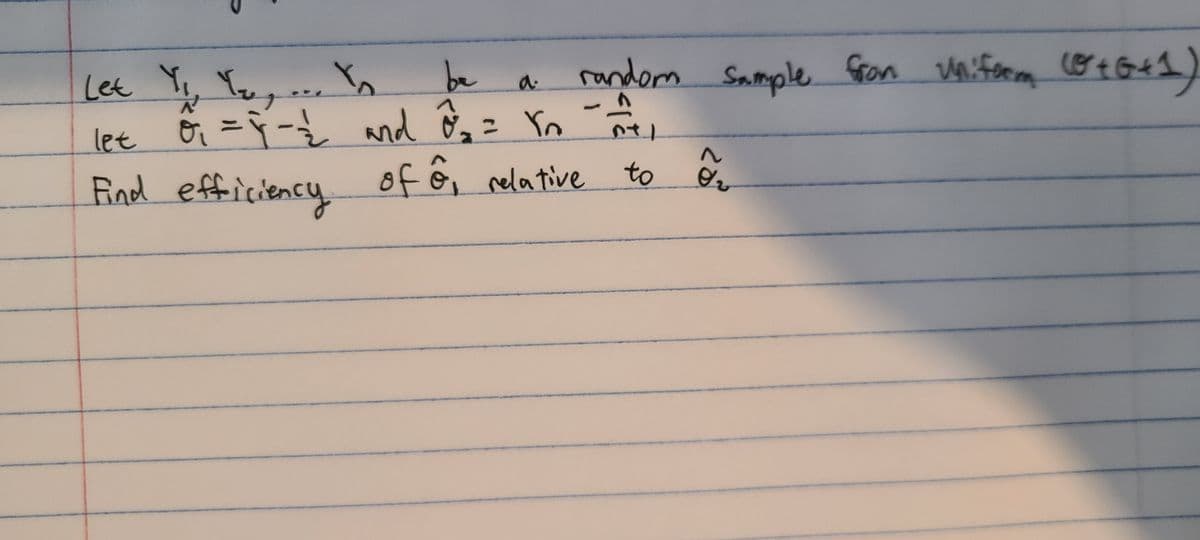 Let Y₁, Y₂, ... Yn be a random Sample from Uniform (θ + θ+1)
let θ̂₁ = Ȳ - ½ and θ̂₂ = Yn - n/n+1
Find efficiency of θ̂₁ relative to θ̂₂